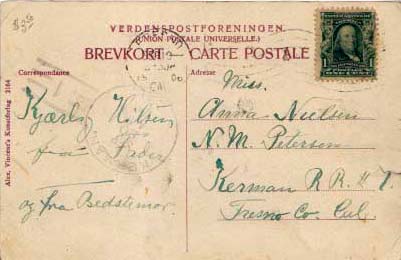 $3.50
VERDENSPOSTFORENINGEN
(UNION POSTALE UNIVERSELLE)
BREVKORT - CARTE POSTALE
Correspondance
Adresse
Alex. Vincent's Kunstforlag 3164
Kjærlig Hilsen
fra Fader
og fra Bedstemor
Miss.
Anna Nielsen
N. M. Petersen
Kerman R R #1.
Fresno Co. Cal.
CAL
06
1 1